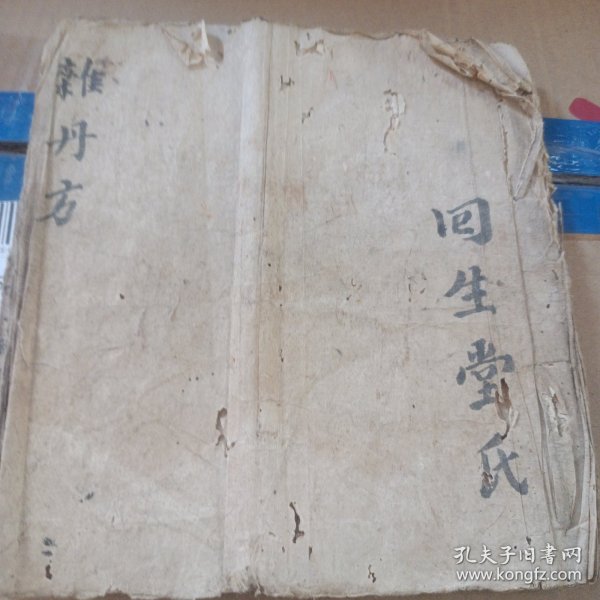 回生堂氏
雜丹方
孔夫子旧书网
www.kongfz.com